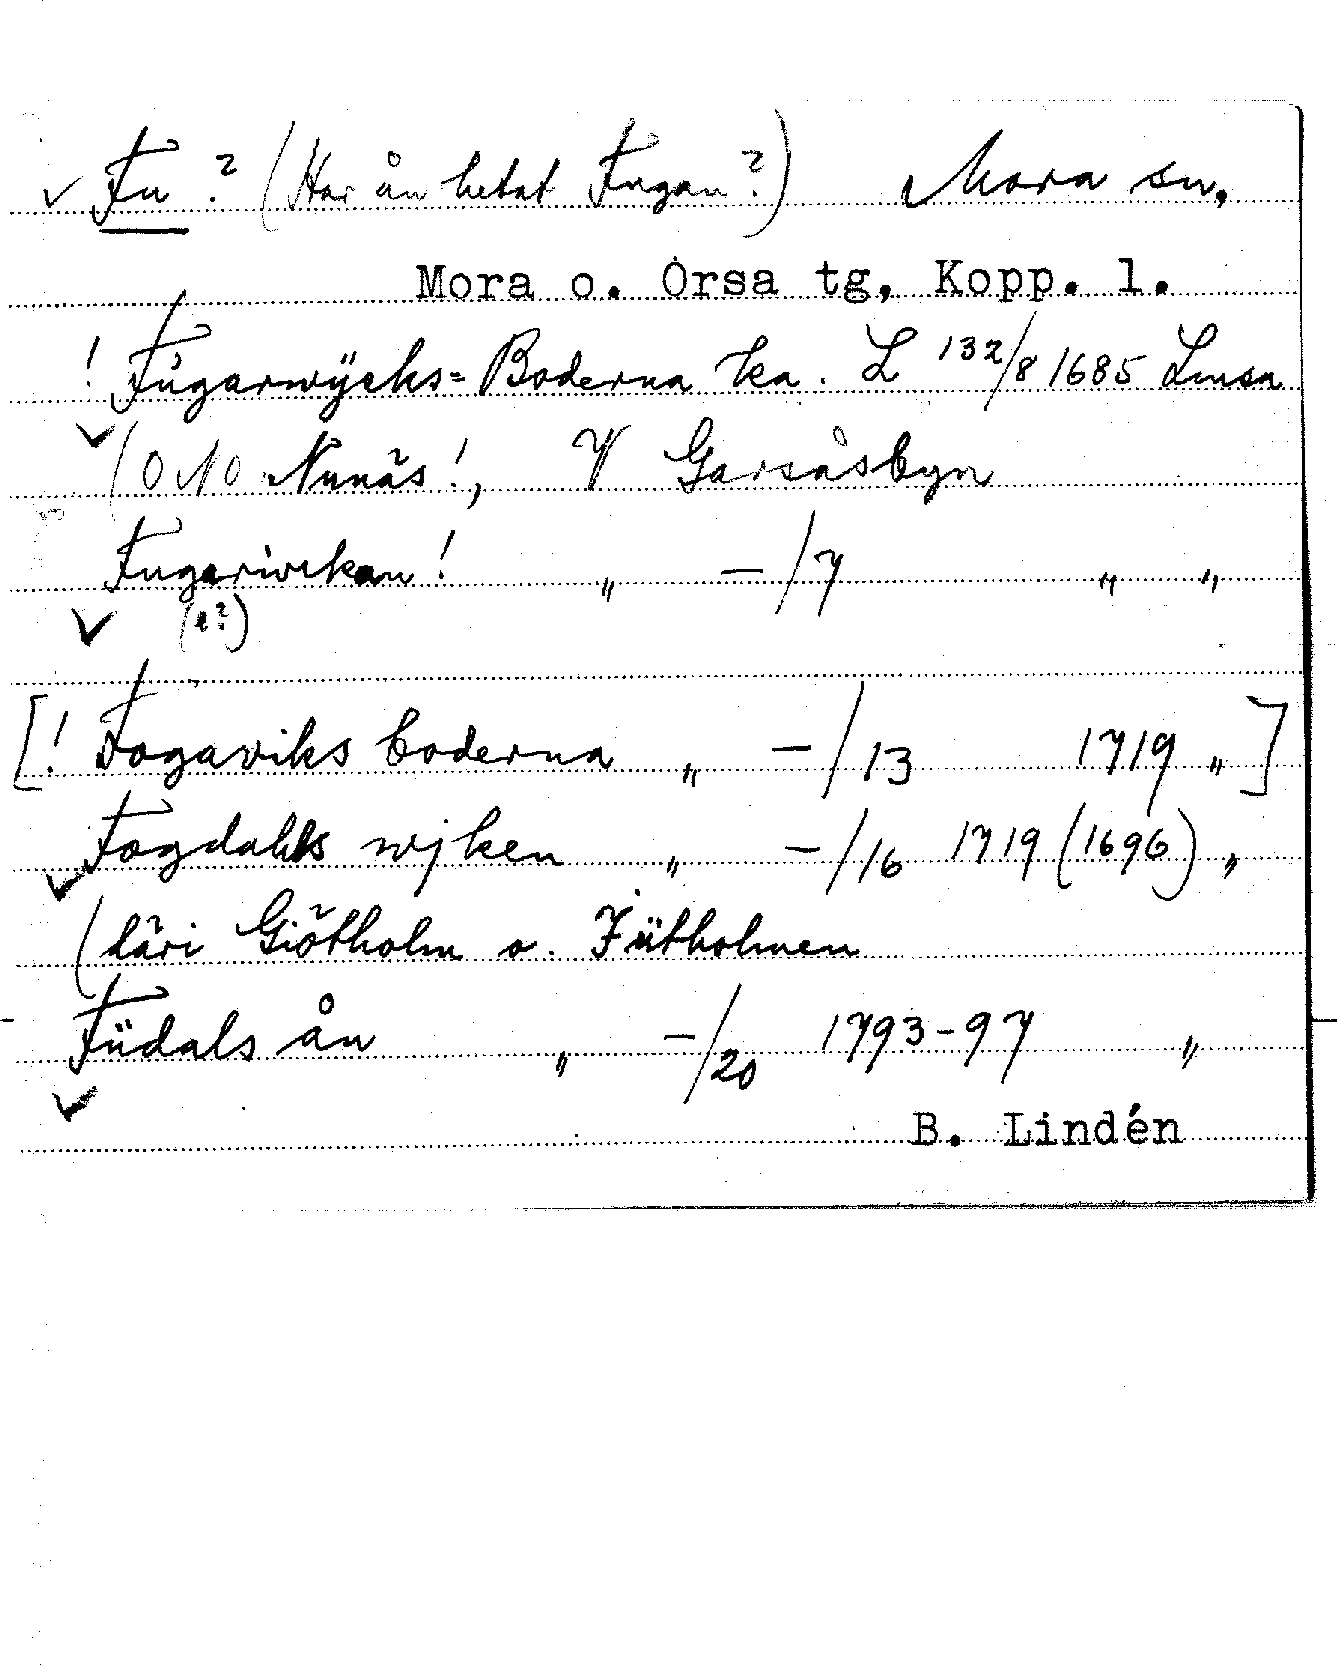 ✓ Fu ? (Har ån hetat Fugan?) Mora sn.
Mora o. Orsa tg, Kopp. l.
! Fugarwÿcks=Boderna ka. L 132/8 1685 Lmsa
✓ (ONO Nunäs!, V Garsåsbyn
Fugarivikan! „ —/7 „ „
✓ (e?)
[! Fogaviks boderna „ —/13 1719 „]
Fogdahls wjken „ —/16 1719 (1696) „
✓ (däri Giötholm o. Fütholmen
Füdals ån „ —/20 1793-97 „
✓
B. Lindén